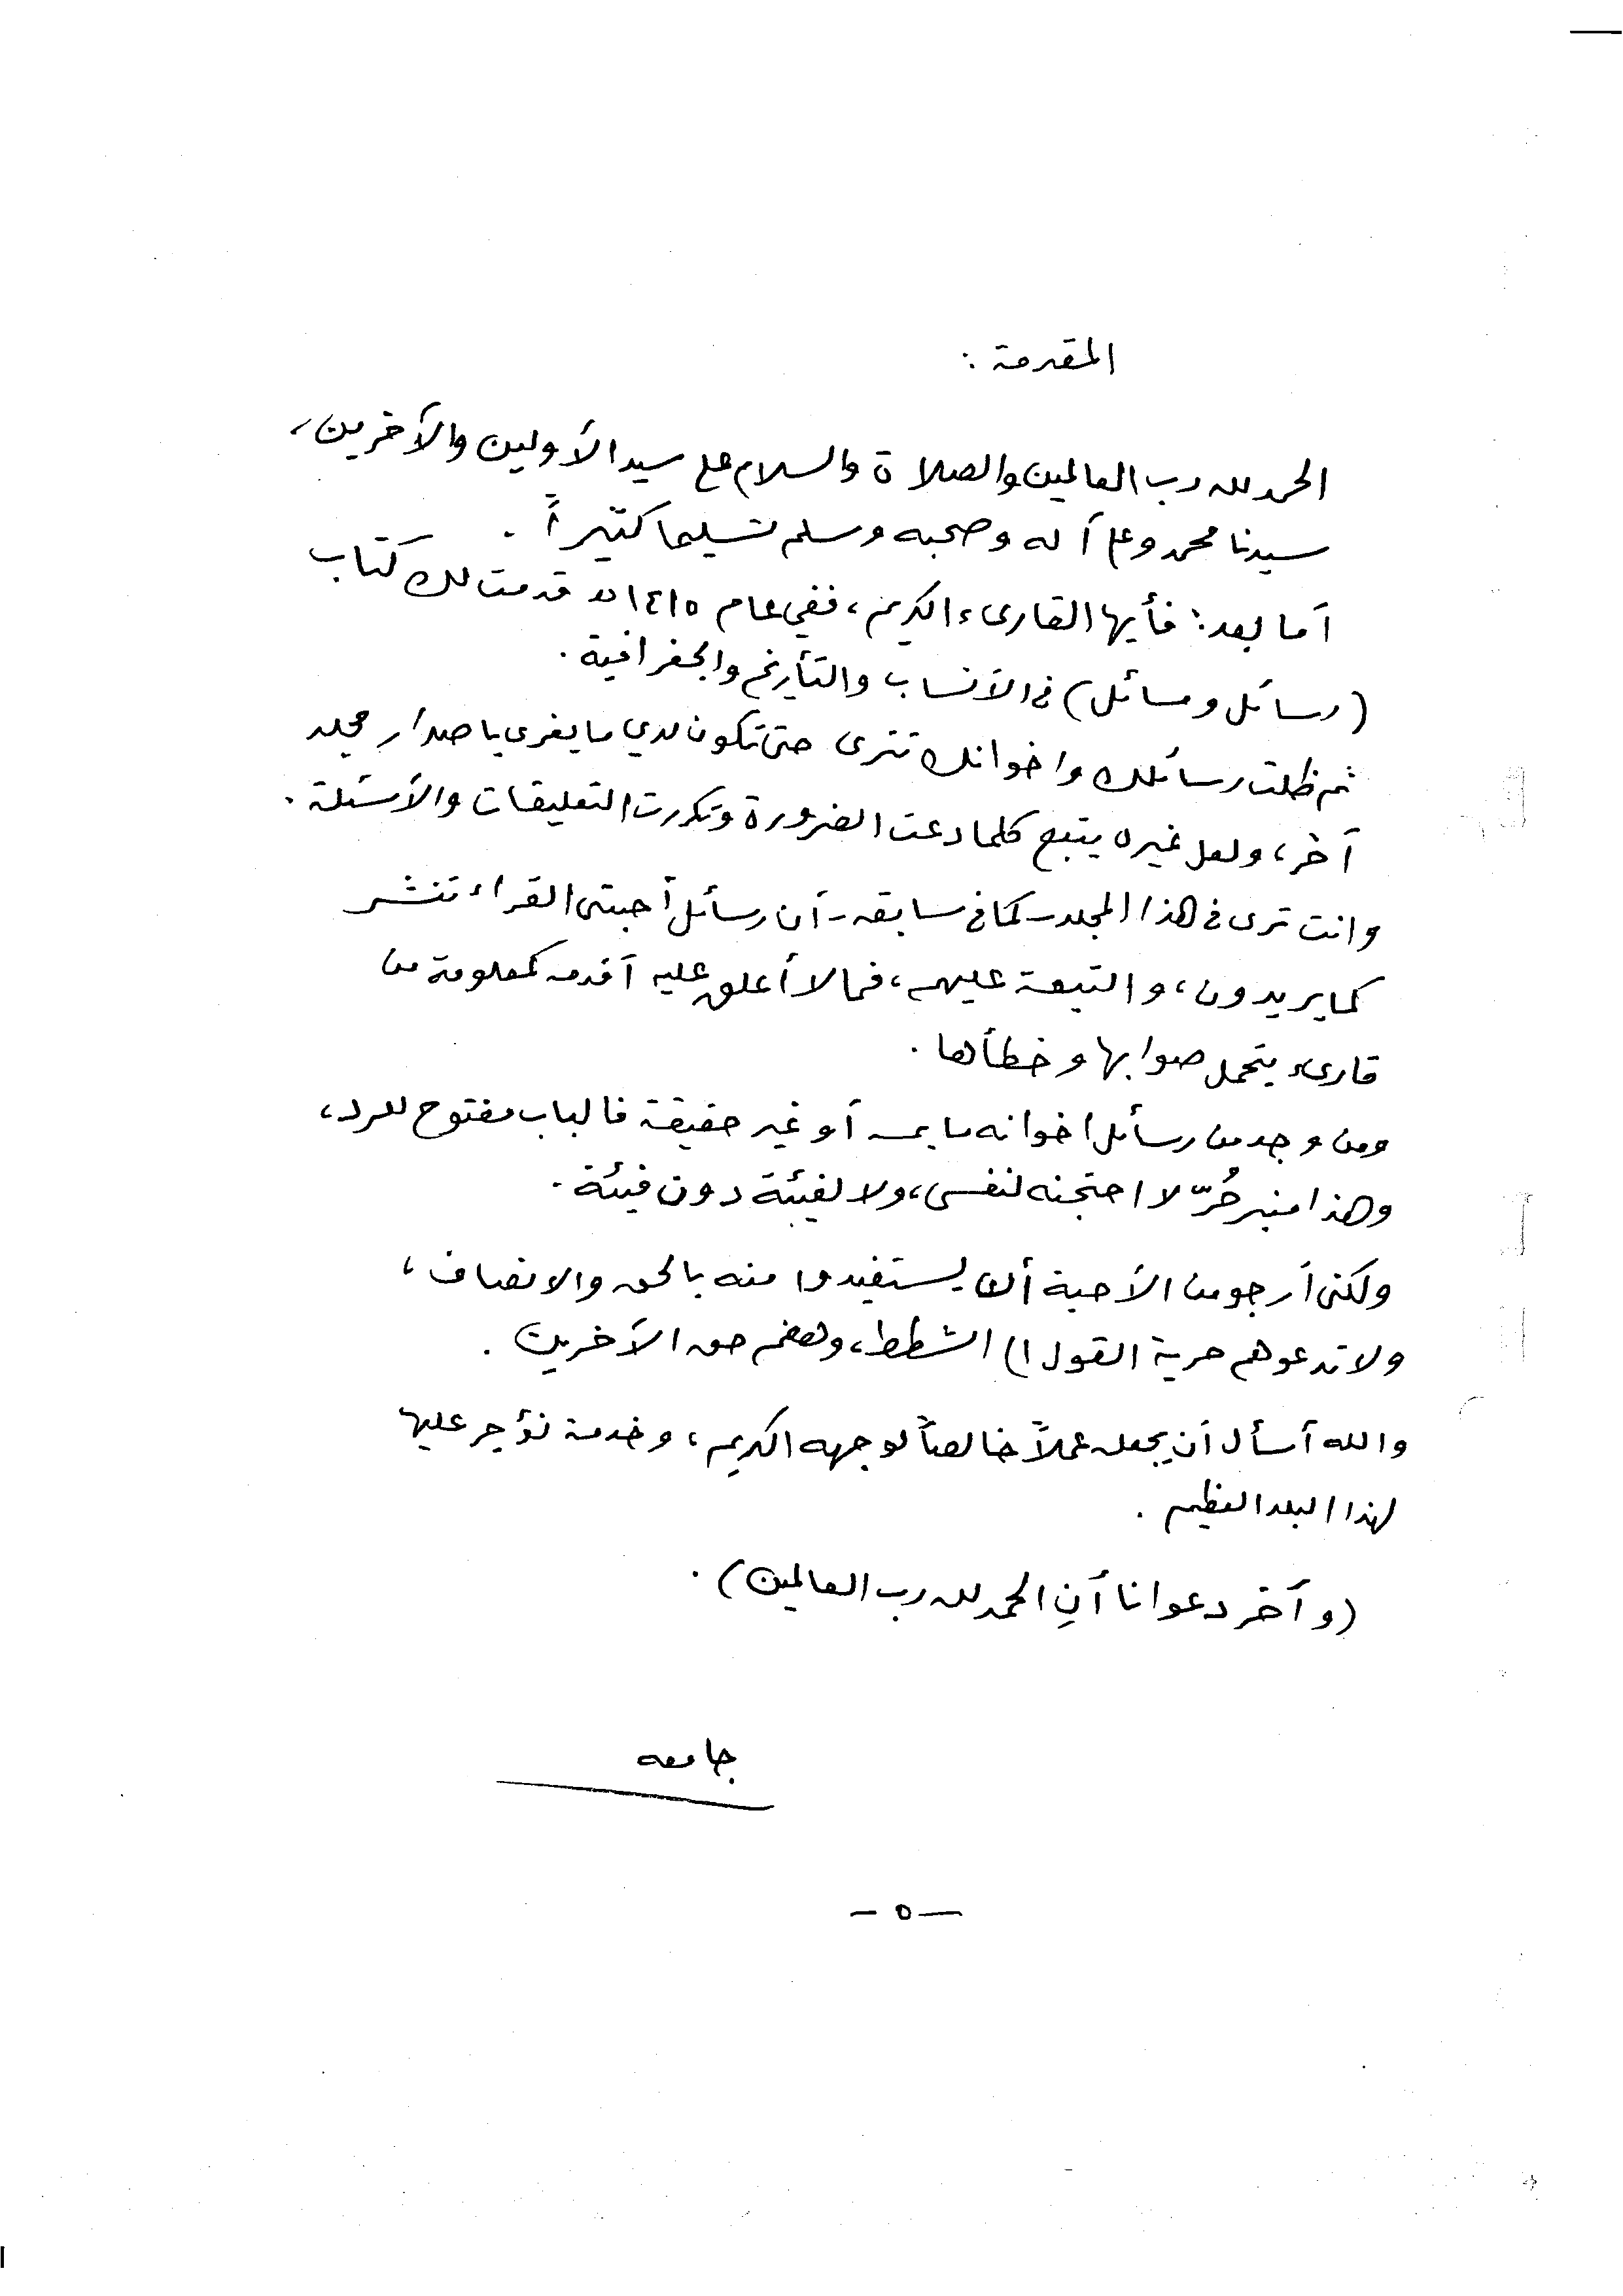 المقدمة :
الحمد لله رب العالمين والصلاة والسلام على سيد الأولين والآخرين،
سيدنا محمد وعلى آله وصحبه وسلم تسليما كثيراً .
أما بعد: فأيها القارىء الكريم، ففي عام ١٤١٥هـ قدمت لك كتاب
(رسائل ومسائل) في الأنساب والتأريخ والجغرافية .
ثم ظلت رسائلك واخوانك تترى حتى تكون لدي ما يغرى باصدار مجلد
آخر، ولعل غيره يتبع كلما دعت الضرورة وتكررت التعليقات والأسئلة .
وانت ترى في هذا المجلد - كما في سابقه - أن رسائل أحبتى القراء تنشر
كما يريدون، والتبعة عليهم، فما لا أعلق عليه أقدمه كمعلومة من
قارىء يتحمل صوابها وخطأها .
ومن وجد من رسائل اخوانه ما يمسه أو غير حقيقة فالباب مفتوح للرد،
وهذا منبر حُرّ لا احتجنه لنفسى، ولا لفيئة دون فيئة .
ولكنى أرجو من الأحبة أن يستفيدوا منه بالحق والانصاف،
ولا تدعوهم حرية القول الى الشطط، وهضم حق الآخرين .
والله أسأل أن يجعله عملاً خالصاً لوجهه الكريم، وخدمة نؤجر عليها
لهذا البلد العظيم .
(وآخر دعوانا أنِ الحمد لله رب العالمين) .
جامعه
— ٥ —